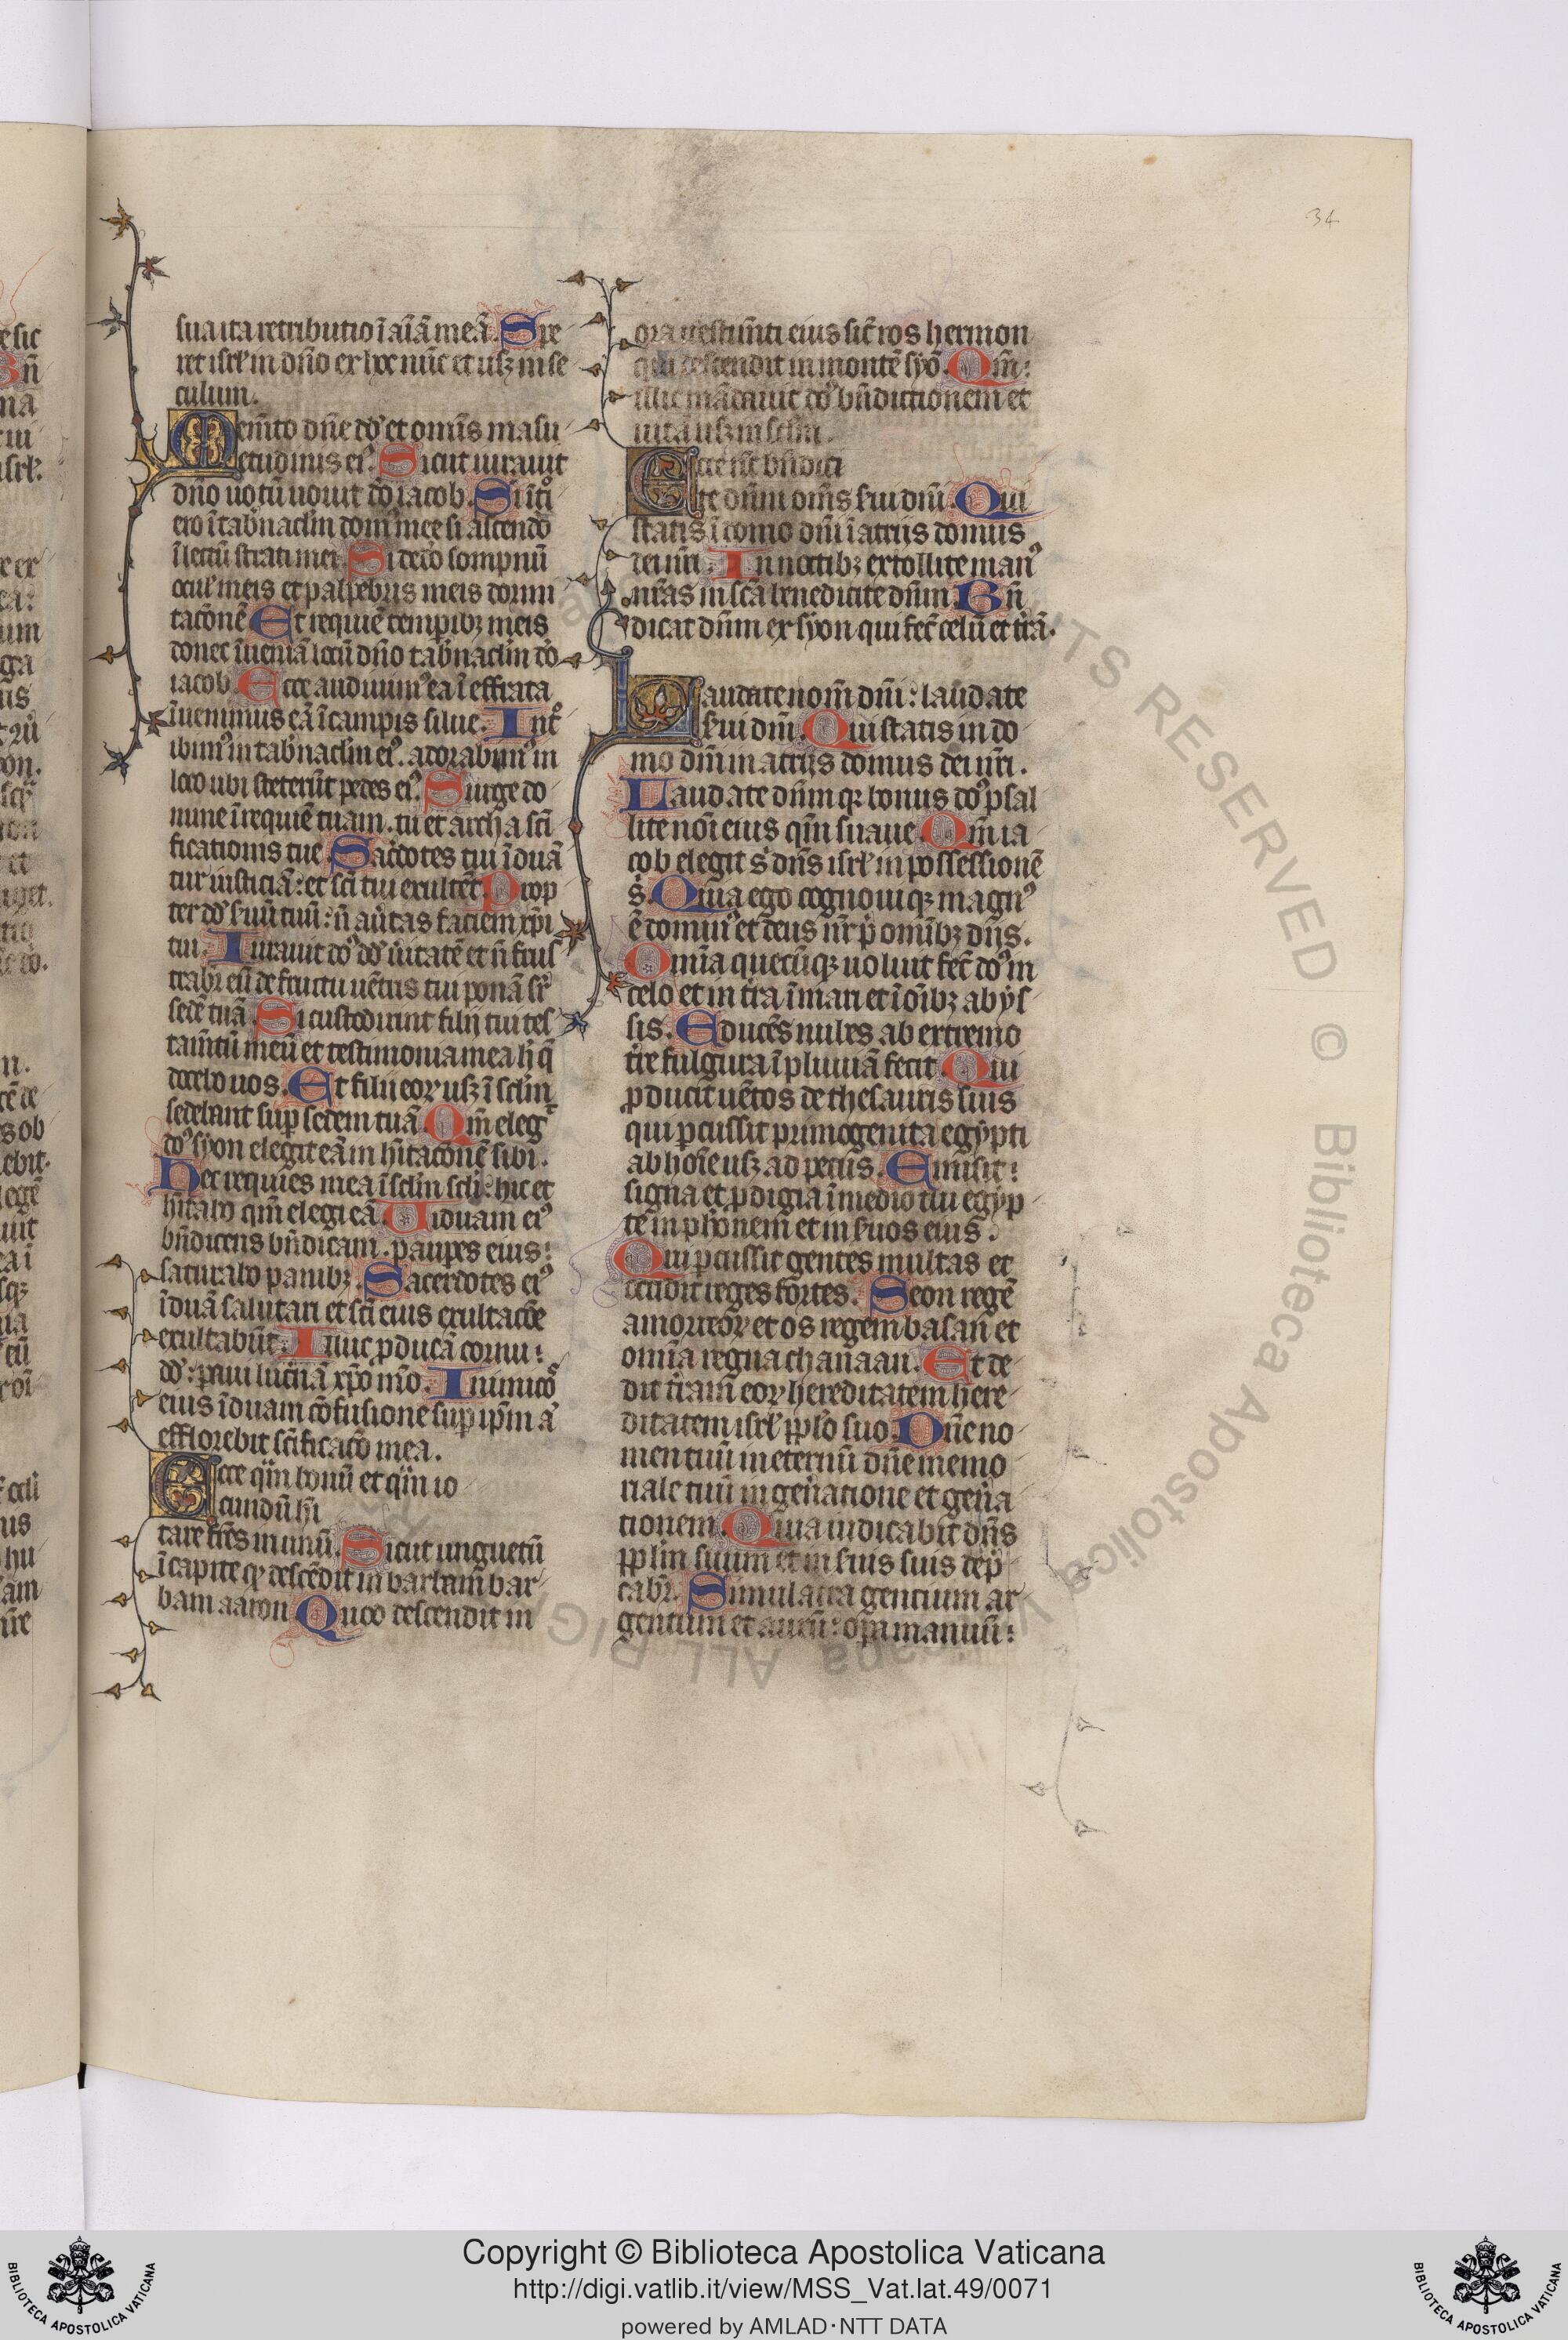 34
sua ita retributio ī aīā meā. Spe
ret isrł in dño ex hoc nūc et usqȝ in se
culum.
Memēto dñe dđ et omīs māsu
etudinis eiꝰ. Sicut iurauit
dño uotū uouit dō iacob. Si ītͦi
ero ī tab̄naclm domꝰ mee si ascendō
ī lectū strati mei. Si dedo sompnū
oculꝭ meis et palpebris meis dormi
tacōnē Et requiē tempibȝ meis
donec īueniā locū dño tab̄naclm dō
iacob. Ecce audiuimꝰ ea ī effrata
īuenimus eā ī campis silue. Intͦ
ibimꝰ in tab̄naclm eiꝰ. adorabimꝰ in
loco ubi steterūt pedes eiꝰ. Surge do
mine ī requiē tuam. tu et archa sc̄i
ficationis tue Sac̄dotes tui īduā
tur iusticiā: et sc̄i tui exultēt. Prop
ter dđ suū tuū: n̄ au̇tas faciem xp̄i
tui. Iurauit dō dđ u̇itatē et n̄ frus
trabꝰ eū de fructu uētris tui ponā sꝛ
sedē tuā. Si custodierint filii tui tes
tam̄tū meū et testimonia mea h̄ q̄
docebo uos. Et filii eorꝝ usqȝ ī sclm
sedebunt sup sedem tuā. Qm̄ elegͭ
dō syon elegit eā in hītacōnē sibi.
Hec requies mea ī sclm scli: hic et
hītabo qm̄ elegi eā. Uiduam eiꝰ
bñdicens bñdicam. paupes eius:
saturabo panibȝ. Sacerdotes eiꝰ
īduā salutari et sc̄i eius exultacōe
exultabūt. Illuc pducā cornu:
dđ: paui luc̄nā xp̄o m̄o. Inimicō
eius īduam cōfusione sup ipm̄ a͞
efflorebit sc̄ificacō mea.
Ecce qm̄ bonū et qm̄ io
cundū hī
tare fr̄es in unū. Sicut unguētū
ī capite qđ descēdit in barbam bar
bam aaron Quod descendit in
ora uestim̄ti eius sic̄ ros hermon
qui descendit in montē syō. Qm̄:
illic mādauit dō bñdictionem et
uitā usqȝ in sclm.
Ecce nc̄ bñdici
te dñm oms sui dñi. Qui
statis ī domo dñi ī atriis domus
dei nr̄i. In noctibȝ extollite manꝰ
nr̄as in sc̄a benedicite dñm. Bñ
dicat dñm ex syon qui fec̄ celū et tr̄ā.
Laudate nom̄ dñi: laudate
sui dñm. Qui statis in do
mo dñi in atriis domus dei nr̄i.
Laudate dñm qꝛ bonus dō psal
lite noī eius qm̄ suaue. Qm̄ ia
cob elegit s dñs isrł in possessionē
s. Quia ego cognoui qȝ magnꝰ
ē dominꝰ et deus nr̄ p̄ omībȝ dys.
Omīa quecūqȝ uoluit fec̄ dō in
celo et in tr̄a ī mari et ī oībȝ abys
sis. Educēs nubes ab extremo
tr̄e fulgura ī pluuiā fecit. Qui
pducit uētos de thesauris suis
qui pcussit primogenita egypti
ab hoīe usqȝ ad pecus. Emisit:
signa et pdigia ī medio tui egyp
te in pharonem et in suos eius.
Qui pcussit gentes multas et
occidit reges fortes. Seon regē
amorreorꝝ et og regem basan et
omīa regna chanaan. Et de
dit tr̄am eorꝝ hereditatem here
ditatem isrł pplo suo. Dñe no
men tuū in eternū dñe memo
riale tuū in gen̄atione et gen̄a
tionem. Quia iudicabit dñs
pplm suum et in suis suis dep̄
cabꝰ. Simulacra gentium ar
gentum et aurū: opa manuū:
Copyright © Biblioteca Apostolica Vaticana
http://digi.vatlib.it/view/MSS_Vat.lat.49/0071
powered by AMLAD·NTT DATA